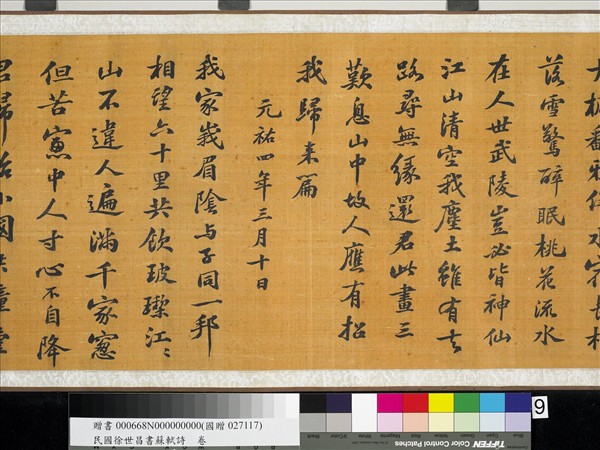 落雪驚醉眠桃花流水
在人世武陵豈必皆神仙
江山清空我塵土雖有去
路尋無緣還君此畫三
歎息山中故人應有招
我歸來篇
元祐四年三月十日
我家峩眉陰與子同一邦
相望六十里共飲玻瓈江江
山不違人遍滿千家窻
但苦窻中人寸心不自降
贈書 000668N000000000(國贈 027117)
民國徐世昌書蘇軾詩 卷
9
TIFFEN Color Control Patches
Blue
Cyan
Green
Yellow
Red
Magenta
White
3/Color
Black